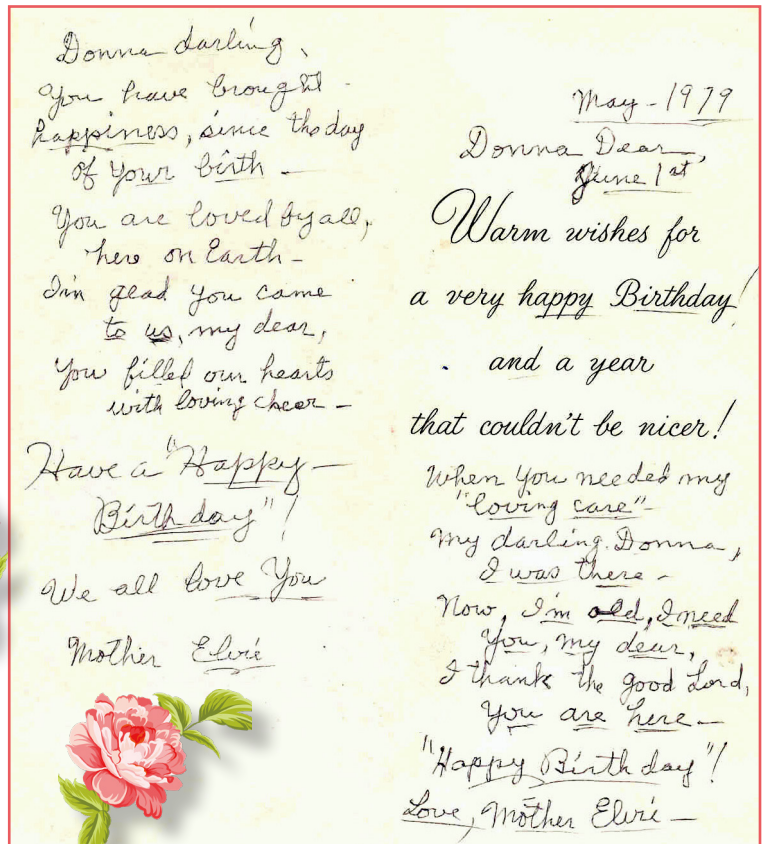 Donna darling,
You have brought
happiness, since the day
of your birth -
You are loved by all,
here on Earth -
I'm glad you came
to us, my dear,
You filled our hearts
with loving cheer -
Have a "Happy
Birthday"!
We all love You
Mother Elvie
May - 1979
Donna Dear,
June 1st
Warm wishes for
a very happy Birthday!
and a year
that couldn't be nicer!
When you needed my
"loving care" -
My darling Donna,
I was there -
Now, I'm old, I need
You, my dear,
I thank the good Lord,
You are here -
"Happy Birthday"!
Love, Mother Elvie -